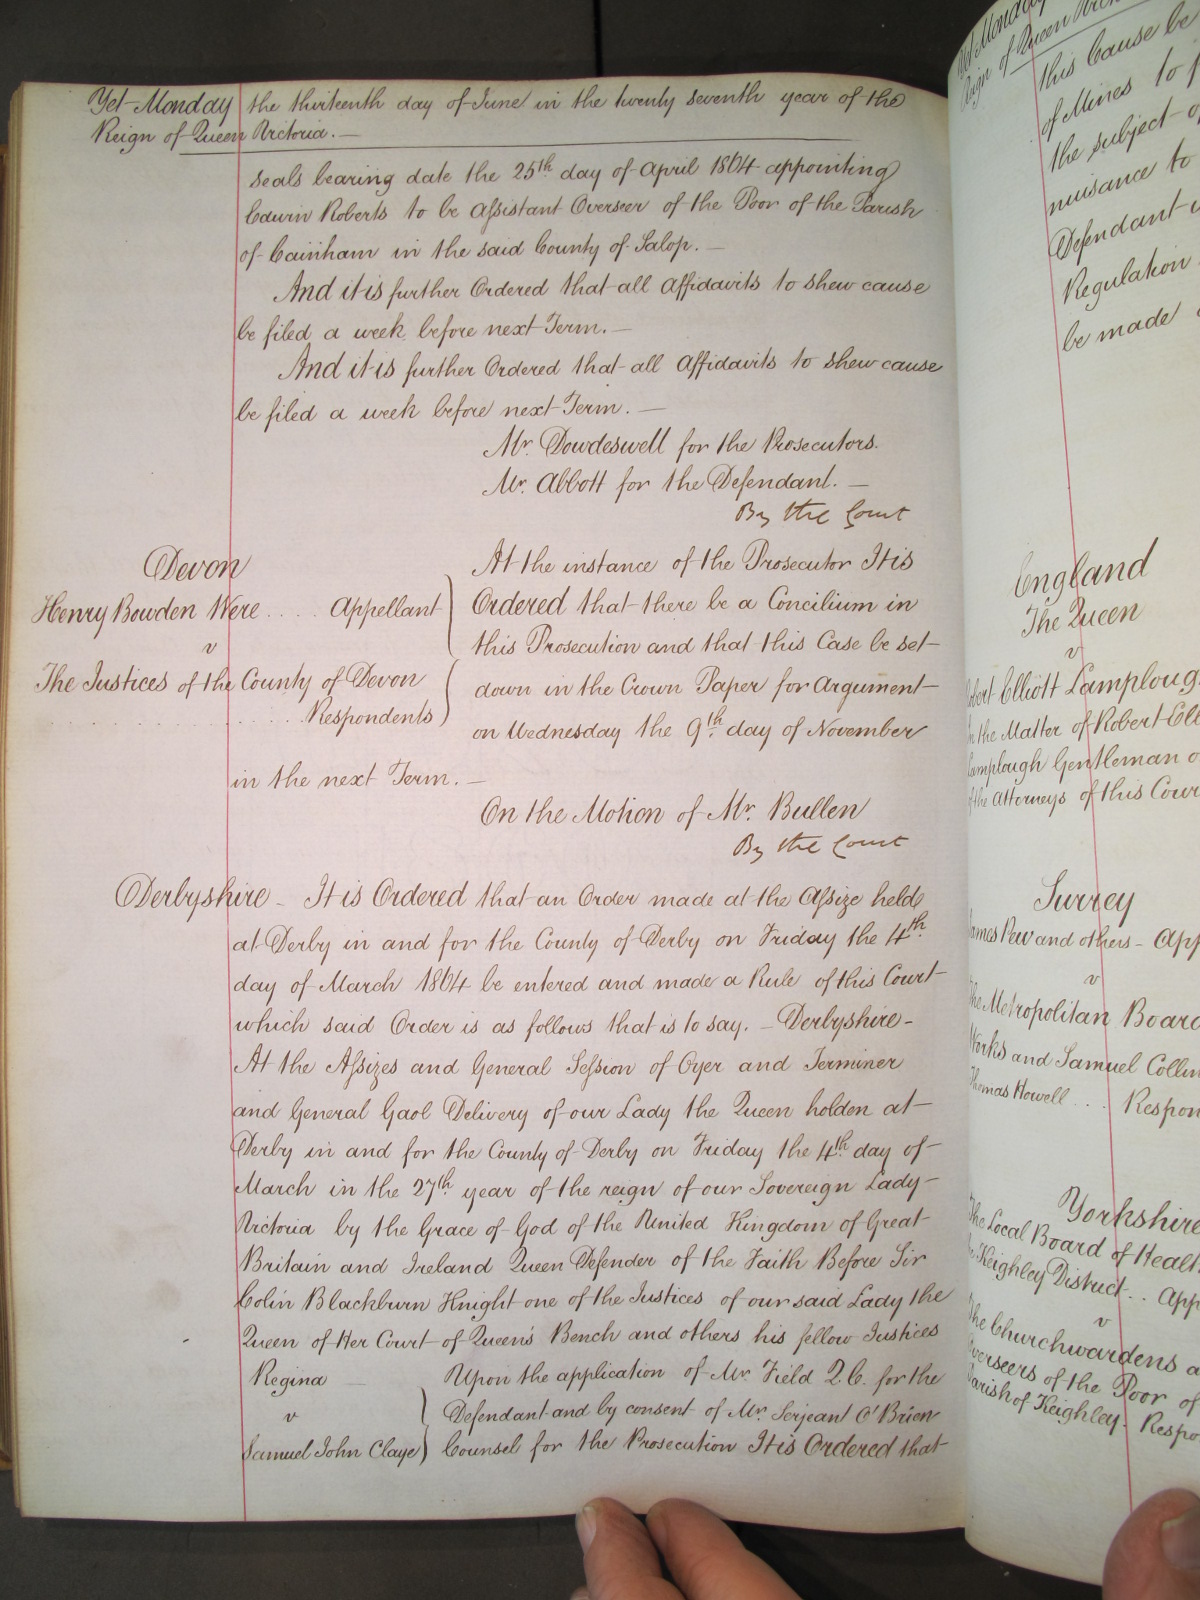 Yet Monday the thirteenth day of June in the twenty seventh year of the
Reign of Queen Victoria. —
seals bearing date the 25th day of April 1864 appointing
Edwin Roberts to be Assistant Overseer of the Poor of the Parish
of Cainham in the said County of Salop. —
And it is further Ordered that all Affidavits to shew cause
be filed a week before next Term. —
And it is further Ordered that all Affidavits to shew cause
be filed a week before next Term. —
Mr. Dowdeswell for the Prosecutors.
Mr. Abbott for the Defendant. —
By the Court
Devon
Henry Bowden Were .... Appellant
v
The Justices of the County of Devon
Respondents
At the instance of the Prosecutor It is
Ordered that there be a Concilium in
this Prosecution and that this Case be set
down in the Crown Paper for Argument
on Wednesday the 9th day of November
in the next Term. —
On the Motion of Mr. Bullen
By the Court
Derbyshire – It is Ordered that an Order made at the Assize held
at Derby in and for the County of Derby on Friday the 4th
day of March 1864 be entered and made a Rule of this Court
which said Order is as follows that is to say. – Derbyshire –
At the Assizes and General Session of Oyer and Terminer
and General Gaol Delivery of our Lady the Queen holden at
Derby in and for the County of Derby on Friday the 4th day of
March in the 27th year of the reign of our Sovereign Lady
Victoria by the Grace of God of the United Kingdom of Great
Britain and Ireland Queen Defender of the Faith Before Sir
Colin Blackburn Knight one of the Justices of our said Lady the
Queen of Her Court of Queen's Bench and others his fellow Justices
Regina
v
Samuel John Claye
Upon the application of Mr. Field Q.C. for the
Defendant and by consent of Mr. Serjeant O'Brien
Counsel for the Prosecution It is Ordered that
Yet Monday
Reign of Queen
this Cause be
of Mines to
the subject of
nuisance to
Defendant
Regulation
be made
England
The Queen
v
Robert Elliott Lamplough
In the Matter of Robert
Lamplough Gentleman
of the Attorneys of this
Surrey
James Pew and others –
v
The Metropolitan Board
Works and Samuel
Thomas Howell ....
Yorkshire
The Local Board of
Keighley District ..
v
The Churchwardens
Overseers of the Poor of
Parish of Keighley.